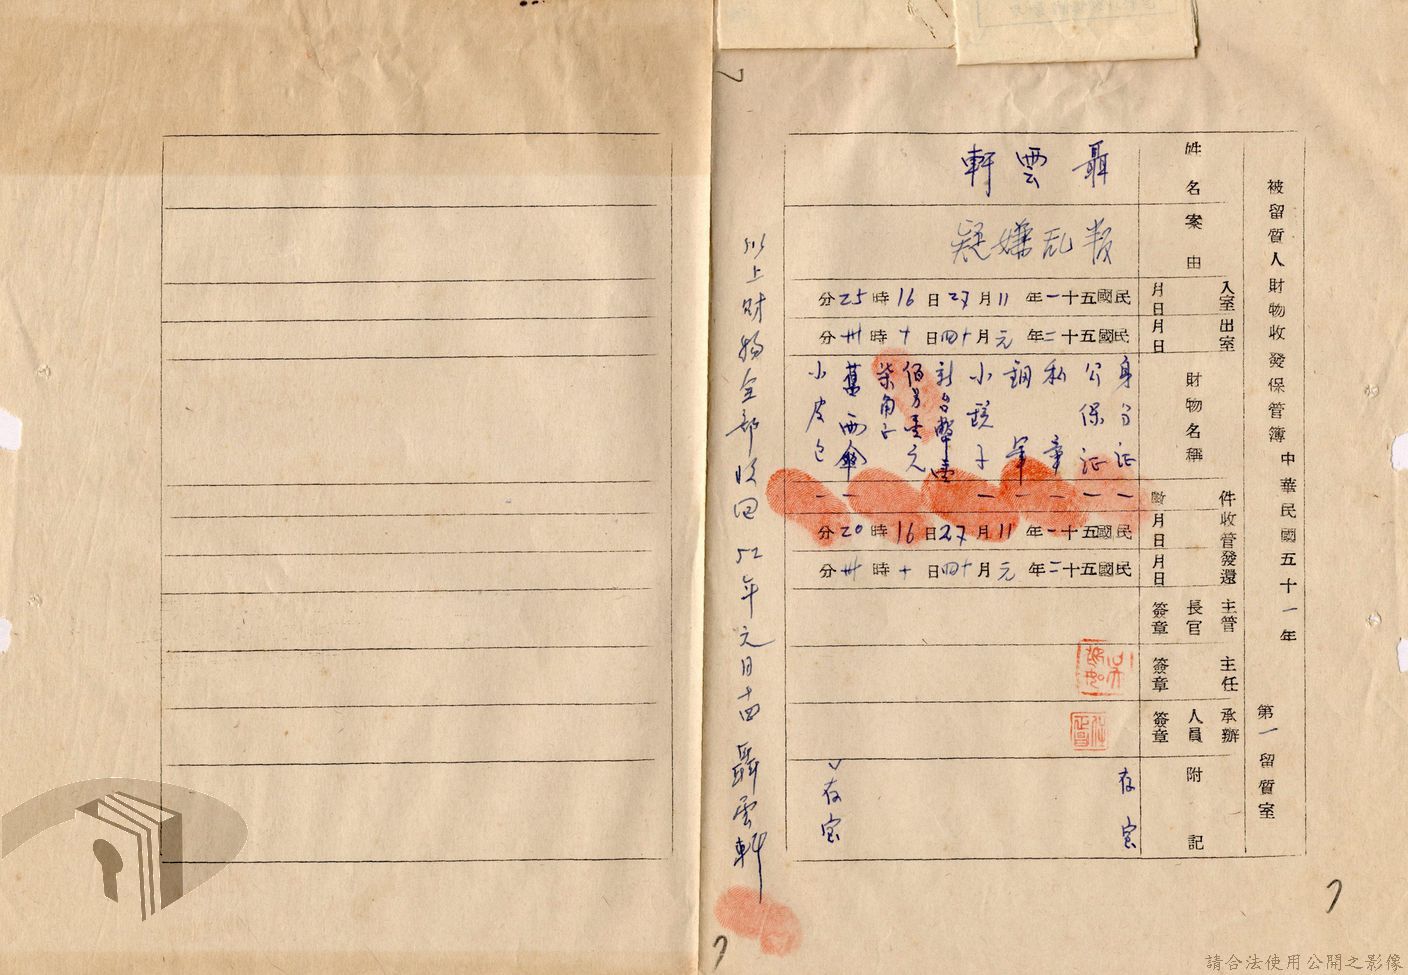 被留質人財物收發保管簿 中華民國五十一年
第一留質室
姓名
聶雲軒
案由
叛乱嫌疑
入室月日
民國五十一年11月27日16時25分
出室月日
民國五十二年元月十四日十時卅分
財物名稱
身分证
公保证
私章
鋼筆
小鏡子
新台幣壹
佰另壹元
柒角正
舊雨傘
小皮包
件數
一
一
一
一
一
一
一
收管月日
民國五十一年11月27日16時20分
發還月日
民國五十二年元月十四日十時卅分
主管長官簽章
主任簽章
承辦人員簽章
附記
存室
存室
以上財物全部收回 52年元月十四 聶雲軒
請合法使用公開之影像